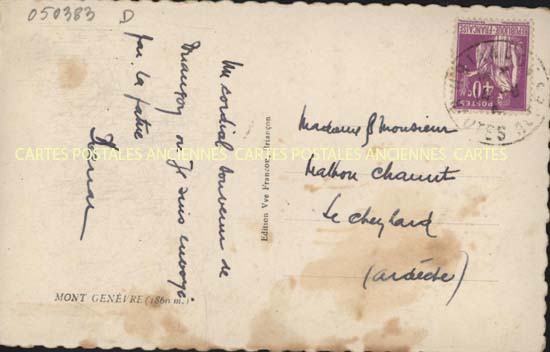 050383 D
Un cordial souvenir de
Briançon où je suis envoyé
par la
MONT GENÈVRE (1860 m.)
Edition Vve Francou, Briançon
Madame & Monsieur
Le Cheylard
(Ardèche)
REPUBLIQUE FRANÇAISE
40c
POSTES
CARTES POSTALES ANCIENNES CARTES POSTALES ANCIENNES CARTES